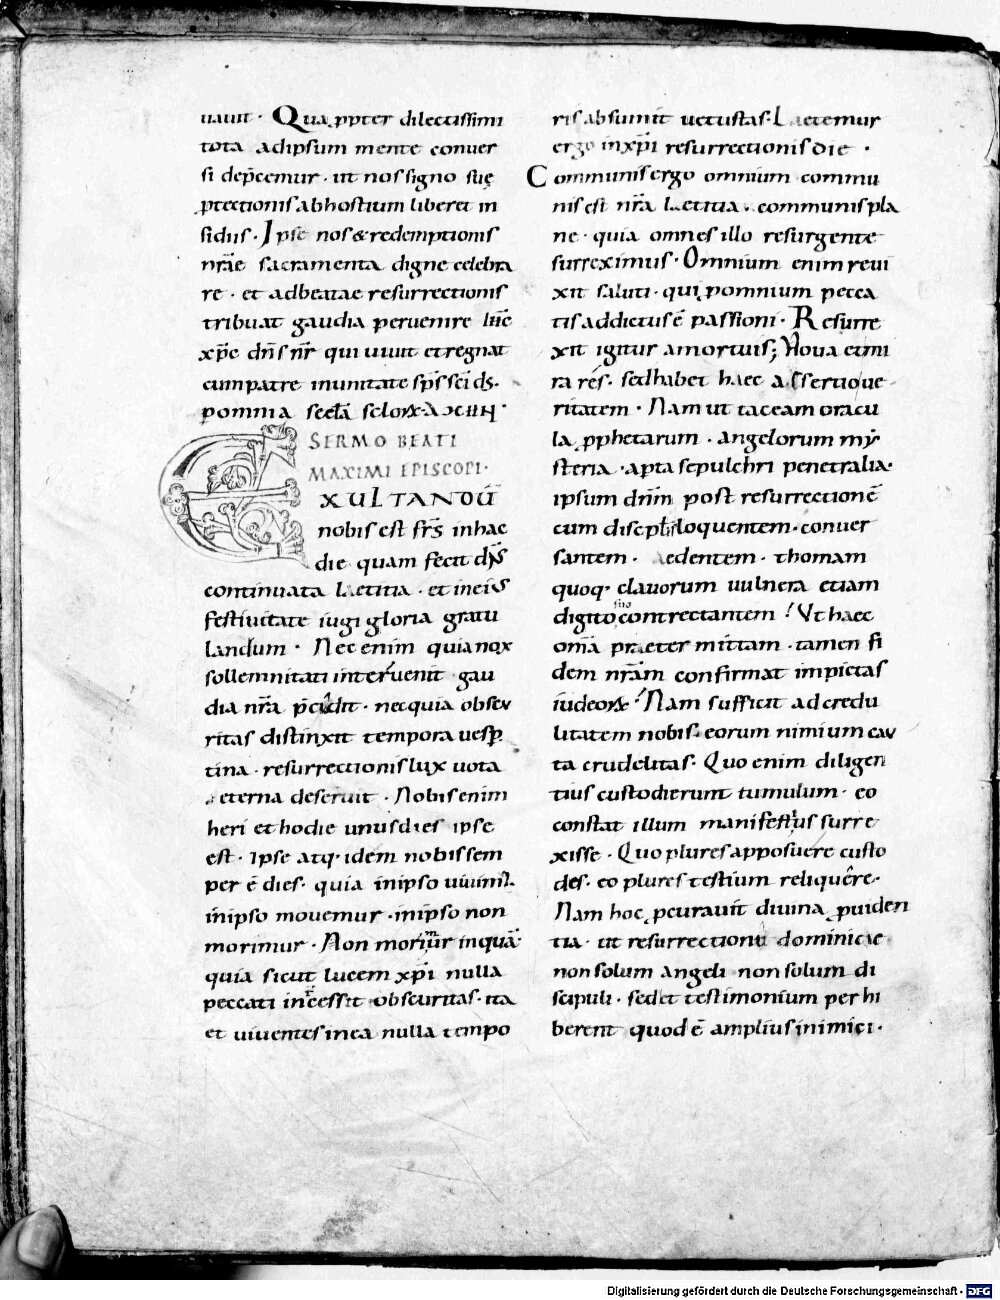 uauit · Qua ꝓpter dilectissimi
tota adipsum mente conuer
si dep̄cemur · ut nos signo suę
ꝓtectionis abhostium liberet in
sidiis · Ipse nos & redemptionis
nr̄ae sacramenta digne celebra
re · et adbeatae resurrectionis
tribuat gaudia peruenire
xp̄e dn̄s nr̄ qui uiuit et regnat
cum patre inunitate sp̄s sc̄i ds̄·
ꝑ omnia
SERMO BEATI
MAXIMI EPISCOPI·
EXULTANDŪ
nobis est fr̄s inhac
die quam fecit dn̄s
continuata laetitia · et ineius
festiuitate iugi gloria gratu
landum · Nec enim quia nox
sollemnitati interuenit gau
dia nr̄a p̄cidit · nec quia obscu
ritas distinxit tempora uesꝑ
tina · resurrectionis lux uota
aeterna deseruit · Nobis enim
heri et hodie unus dies ipse
est · Ipse atq· idem nobis sem
per ē dies · quia inipso uiuim̄·
inipso mouemur · inipso non
morimur · Non morimur inquā·
quia sicut lucem xp̄i nulla
peccati incessit obscuritas · ita
et uiuentes inea nulla tempo
ris absumit uetustas · Laetemur
ergo inxp̄i resurrectionis die ·
Communis ergo omnium commu
nis est nr̄a laetitia · communis pla
ne · quia omnes illo resurgente
surreximus · Omnium enim reui
xit saluti · qui ꝓ omnium pecca
tis addictus ē passioni · Resurre
xit igitur amortuis; Noua et mi
ra res · sed habet haec assertio ue
ritatem · Nam ut taceam oracu
la ꝓphetarum · angelorum my
steria · apta sepulchri penetralia·
ipsum dn̄m post resurrectionē
cum discipulis loquentem · conuer
santem · aedentem · thomam
quoq· clauorum uulnera etiam
digito suo contrectantem ! Ut haec
om̄a praeter mittam · tamen fi
dem nr̄am confirmat impietas
iudeorꝝ ! Nam sufficit ad credu
litatem nobis · eorum nimium cau
ta crudelitas · Quo enim diligen
tius custodierunt tumulum · eo
constat illum manifestius surre
xisse · Quo plures apposuere custo
des · eo plures testium reliquēre ·
Nam hoc ꝓcurauit diuina ꝓuiden
tia · ut resurrectioni dominicae
non solum angeli non solum di
scipuli · sed et testimonium per hi
berent quod ē amplius inimici ·
Digitalisierung gefördert durch die Deutsche Forschungsgemeinschaft - DFG